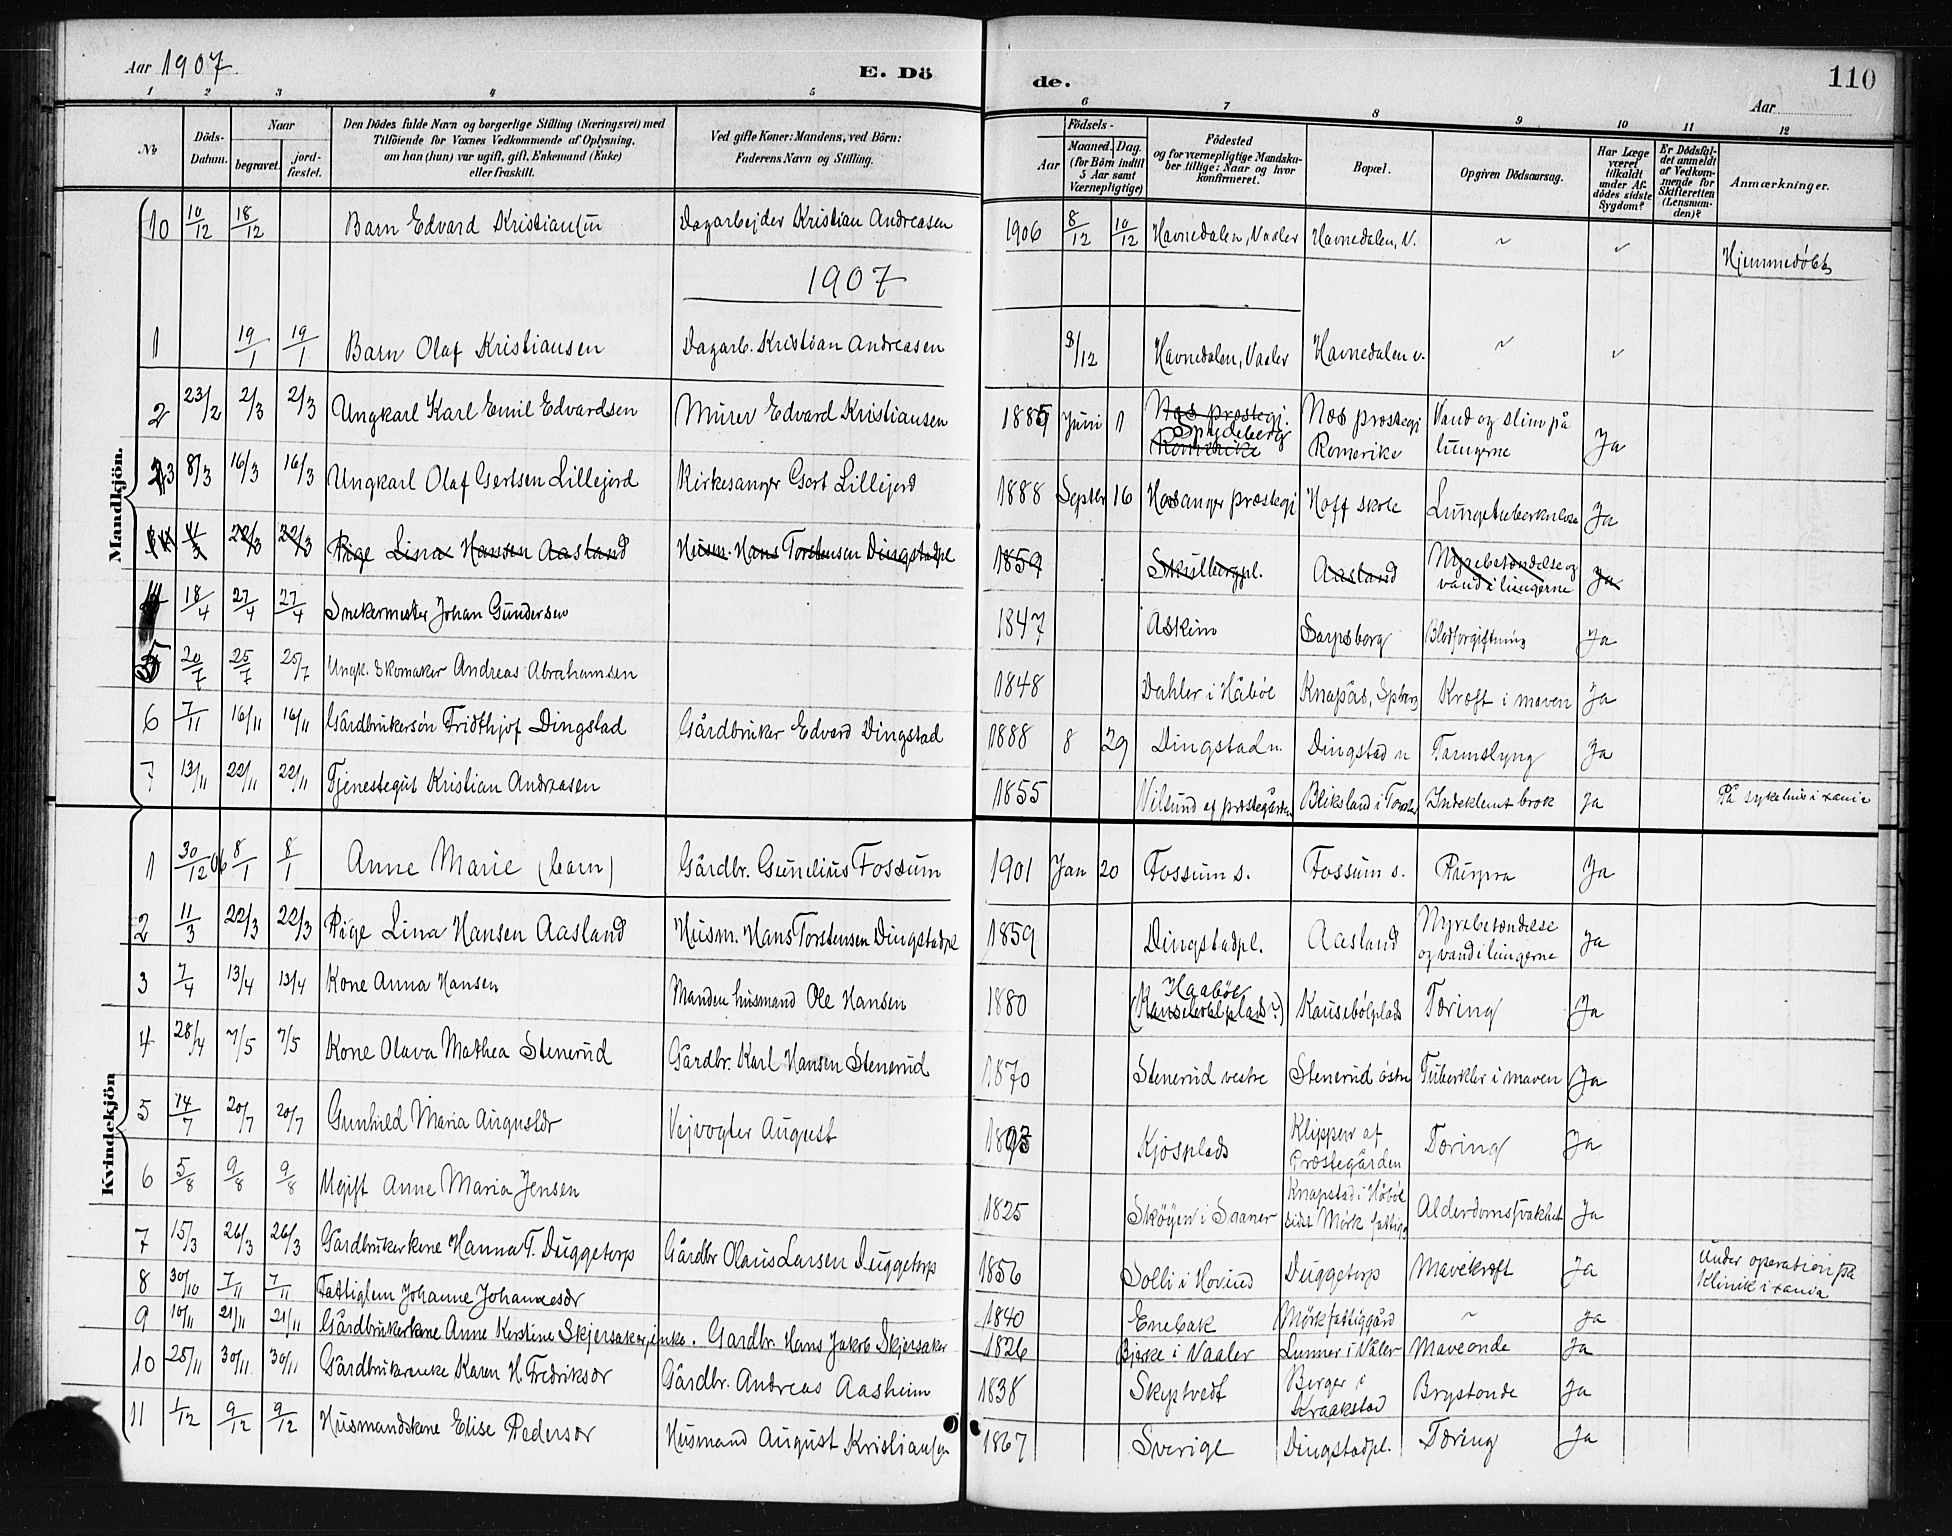 Aar 1907
E. Dö
de.
110
Aar
1 2 3 4 5 6 7 8 9 10 11 12
No.
Döds-Datum.
Naar
begravet.
jord-fæstet.
Den Dödes fulde Navn og borgerlige Stilling (Næringsvei) med
Tilföiende for Voxnes Vedkommende af Oplysning,
om han (hun) var ugift, gift, Enkemand (Enke)
eller fraskilt.
Ved gifte Koner: Mandens, ved Börn:
Faderens Navn og Stilling.
Födsels-
Aar
Maaned. Dag.
(for Börn indtil
5 Aar samt
Værnepligtige)
Födested
og for værnepligtige Mandska-
ber tillige: Naar og hvor
konfirmeret.
Bopæl.
Opgiven Dödsaarsag.
Har Læge
været
tilkaldt
under Af-
dödes sidste
Sygdom?
Er Dödsfal-
det anmeldt
af Vedkom-
mende for
Skifteretten
(Lensman-
den)?
Anmærkninger.
Mandkjön.
10 10/12 18/12 Barn Edvard Kristiansen Dagarbejder Kristian Andreasen 1906 8/12 10/12 Havnedalen, Vaaler Havnedalen, V. ~ ~ Hjemmedøbt
1907
1 19/1 19/1 Barn Olaf Kristiansen Dagarb. Kristian Andreasen 8/12 Havnedalen, Vaaler Havnedalen v. ~ ~
2 23/2 2/3 2/3 Ungkarl Karl Emil Edvardsen Murer Edvard Kristiansen 1885 Juni 1 Næs præstegj. Romerike Spydeberg Næs præstegj Romerike Vand og slim på lungerne Ja
3 8/3 16/3 16/3 Ungkarl Olaf Gertsen Lillejord Kirkesanger Gert Lillejord 1888 Septbr 16 Hosanger præstegj Hoff skole Lungetuberkulose Ja
11/3 22/3 22/3 Pige Lina Hansen Aasland Husm. Hans Torstensen Dingstadpl 1859 Skullerpl. Aasland Nyrebetændelse og vand i lungerne Ja
4 18/4 27/4 27/4 Snekermester Johan Gundersen 1847 Askim Sarpsborg Blodforgiftning Ja
5 20/7 25/7 25/7 Ungk. Skomaker Andreas Abrahamsen 1848 Dahler i Håbøl Knapås, Spberg Kræft i maven Ja
6 7/11 16/11 16/11 Gårdbrukersøn Fridthjof Dingstad Gårdbruker Edvard Dingstad 1888 8 29 Dingstad n. Dingstad n Tarmslyng Ja
7 13/11 22/11 22/11 Tjenestegut Kristian Andreasen 1855 Vilsund af præstegården Bliksland i Indeklemt brok Ja På sykehus i xania
Kvindekjön
1 30/12 06 8/1 8/1 Anne Marie (barn) Gårdbr. Gunelius Fossum 1901 Jan 20 Fossum s. Fossum s. Purpra Ja
2 11/3 22/3 22/3 Pige Lina Hansen Aasland Husm. Hans Torstensen Dingstadpl 1859 Dingstadpl. Aasland Nyrebetændelse og vand i lungerne Ja
3 7/4 13/4 13/4 Kone Anna Hansen Manden husmand Ole Hansen 1880 Haabøl (Kausebølplads?) Kausebølplads Tæring Ja
4 28/4 7/5 7/5 Kone Olava Mathea Stenerud Gårdbr. Karl Hansen Stenerud 1870 Stenerud vestre Stenerud østre Tuberkler i maven Ja
5 14/7 20/7 20/7 Gunhild Maria Augustdr Vejvogter August 1893 Kjosplads Klyppen af Præstegården Tæring Ja
6 5/8 9/8 9/8 Ugift Anne Maria Jensen 1825 Skøyen i Saaner Knapstad i Håbøl sidst Mørk fattigg Alderdomssvakhet Ja
7 15/3 26/3 26/3 Gårdbrukerkone Hanna T. Duggetorp Gårdbr Olaus Larsen Duggetorp 1856 Solli i Hovind Duggetorp Mavekræft Ja Under operation på klinik i xania
8 30/10 7/11 7/11 Fattiglem Johanne Johannesdr 1840 Enebak Mørk fattiggård ~ Ja
9 10/11 21/11 21/11 Gårdbrukerkone Anne Kerstine Skjersaker, enke. Gardbr. Hans Jakob Skjersaker 1826 Bjerke i Vaaler Lunner i Våler Maveonde Ja
10 25/11 30/11 30/11 Gårdbrukerenke Karen H. Fredriksdr Gårdbr. Andreas Aasheim 1838 Skiptvedt Berger i Kraakstad Brystonde Ja
11 1/12 9/12 9/12 Husmandskone Elise Pedersdr Husmand August Kristiansen 1867 Sverige Dingstadpl. Tæring Ja